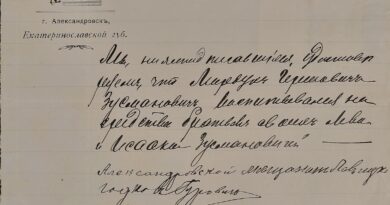 г. Александровскъ,
Екатеринославской губ.
Мы, нижеподписавшіеся, удостовѣ
ряемъ, что
Зусмановичъ воспитывался на
средства братьевъ своихъ Лева
и Исаака Зусмановичей
Александровской мѣщанинъ
Гуровичъ